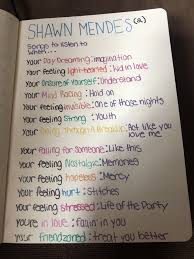 SHAWN MENDES
Songs to listen to
when...
Your Day Dreaming: imagination
Your feeling light-hearted: kid in love
Your Unsure of Yourself: Understand
Your Mind Racing: Hold on
Your feeling invisible: One of those nights
Your feeling Strong: Youth
Your Going Through A Breakup: Act like you
love me
Your falling for someone: Like this
Your feeling Nostalgic: Memories
Your feeling hopeless: Mercy
Your feeling hurt: Stitches
Your feeling stressed: Life of the Party
You're in love: fallin' in you
Your friendzoned: treat you better